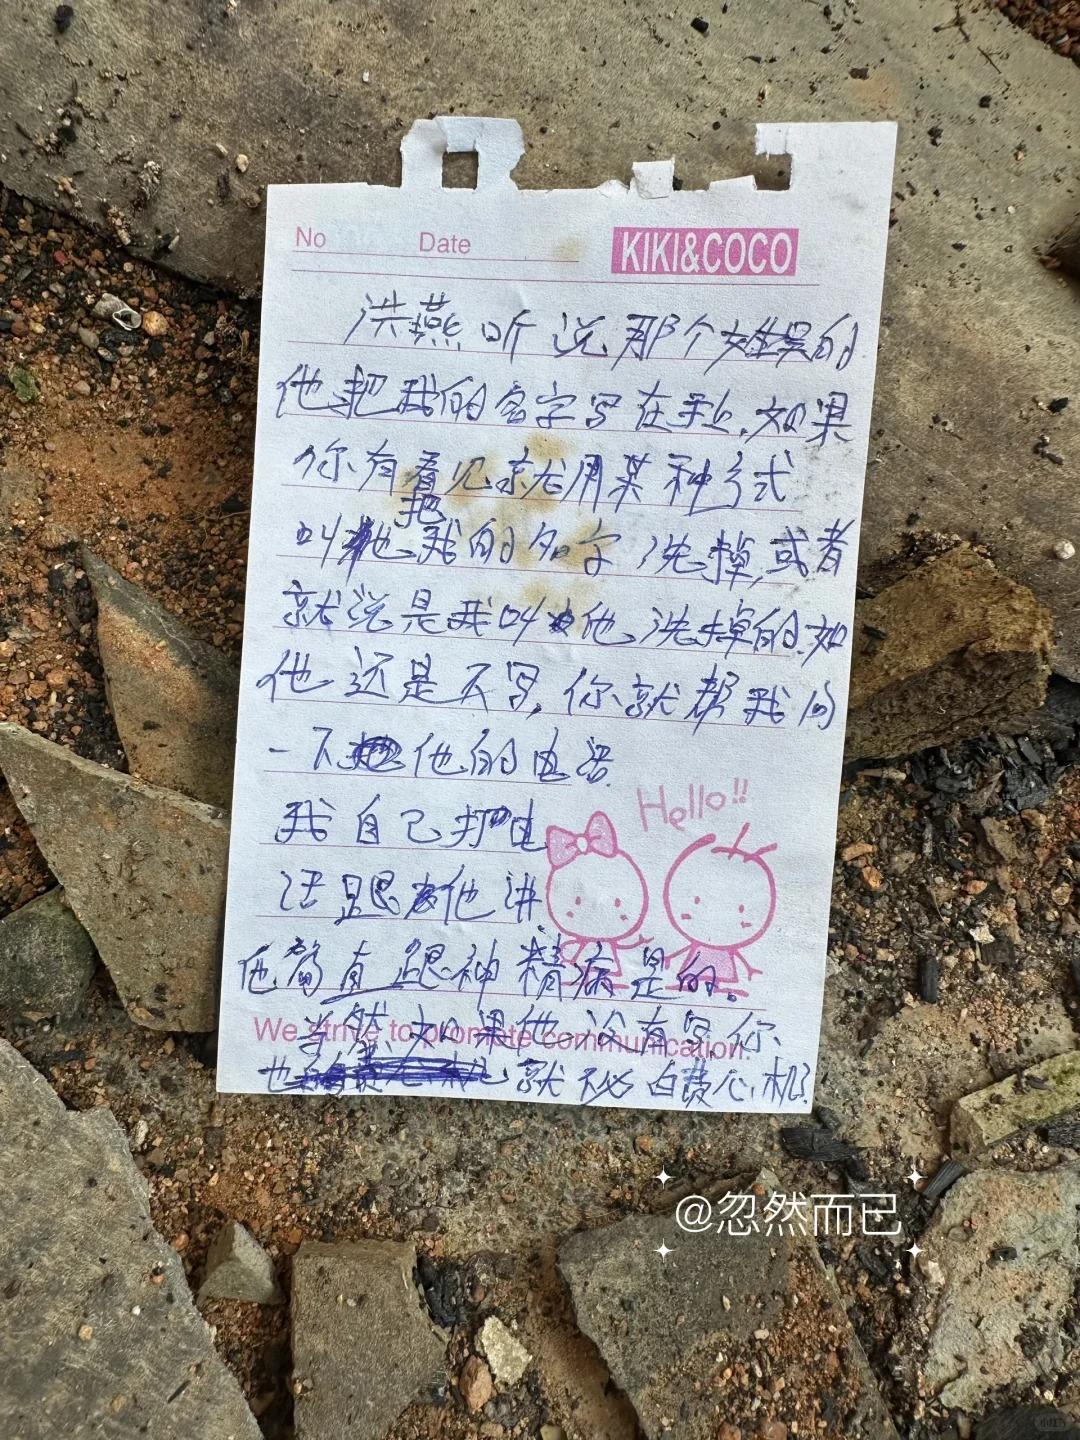 No Date KIKI&COCO
洪燕听说那个姓吴的
他把我的名字写在手上,如果
你有看见就用某种方式
叫他把我的名字洗掉,或者
就说是我叫他洗掉的.如
他还是不写,你就帮我问
一下他的电话.
Hello!!
我自己打电
话跟他讲
他简直跟神精病是的。
We strive to promote communication.
当然如果他没有写,你
也就不必白费心机了
@忽然而已